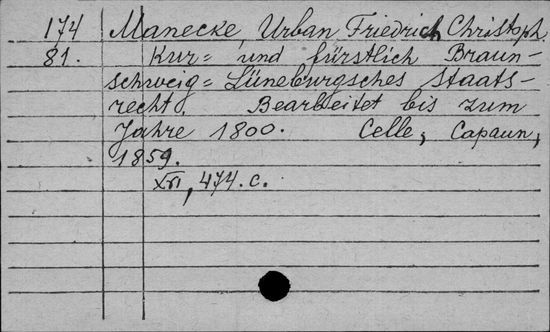 174 Manecke, Urban Friedrich Christoph
81. Kur= und fürstlich Braun-
schweig=Lüneburgsches Staats-
recht. Bearbeitet bis zum
Jahre 1800. Celle, Capaun,
1859.
XVI, 474. c.